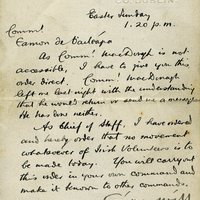 CO. DUBLIN
Easter Sunday
1.20 p.m.
Commt
Eamon de Valera
As Commt MacDonagh is not
accessible, I have to give you this
order direct. Commt MacDonagh
left me last night with the understanding
that he would return or send me a message.
He has done neither.
As Chief of Staff, I have ordered
and hereby order that no movement
whatsoever of Irish Volunteers is to
be made today. You will carry out
this order in your own command and
make it known to other commands.